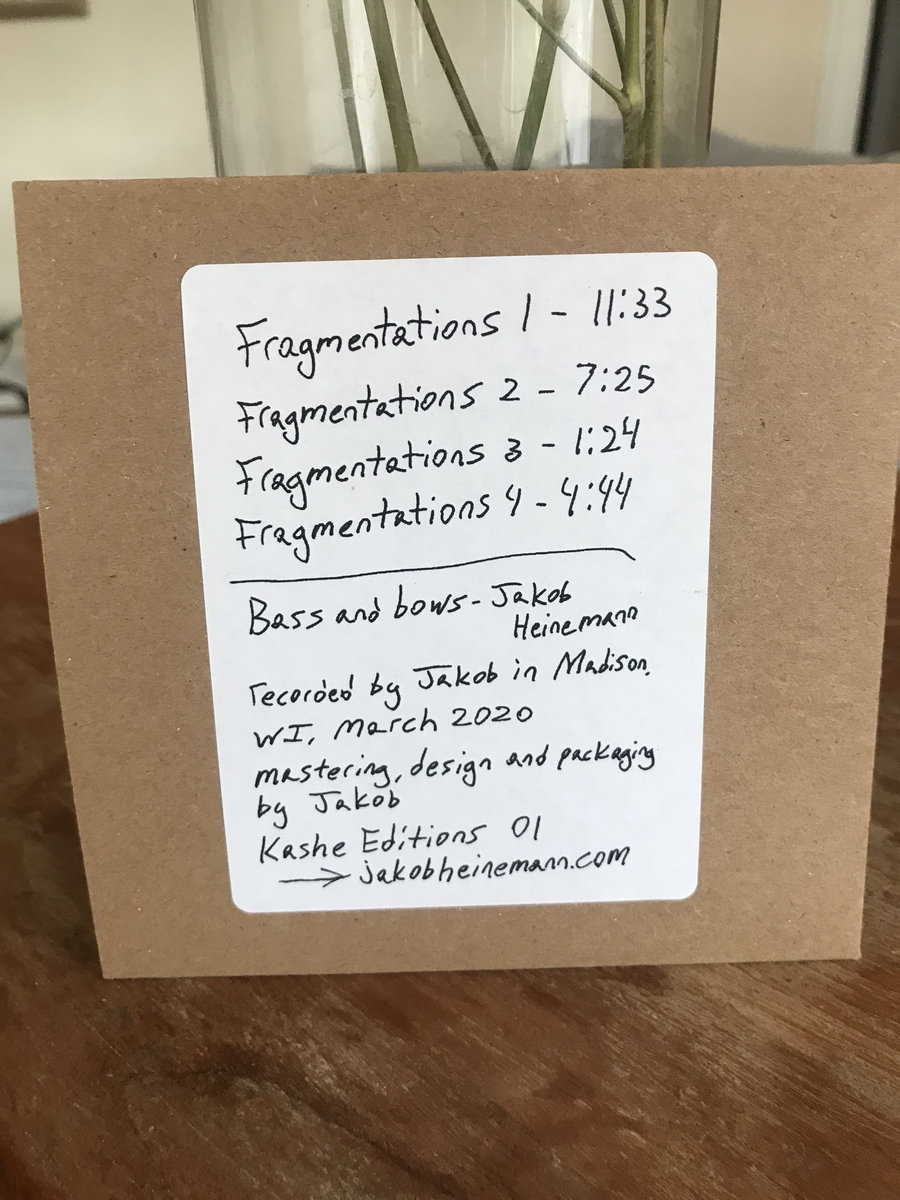 Fragmentations 1 - 11:33
Fragmentations 2 - 7:25
Fragmentations 3 - 1:24
Fragmentations 4 - 4:44
Bass and bows - Jakob
Heinemann
recorded by Jakob in Madison,
WI, March 2020
mastering, design and packaging
by Jakob
Kashe Editions 01
→ jakobheinemann.com